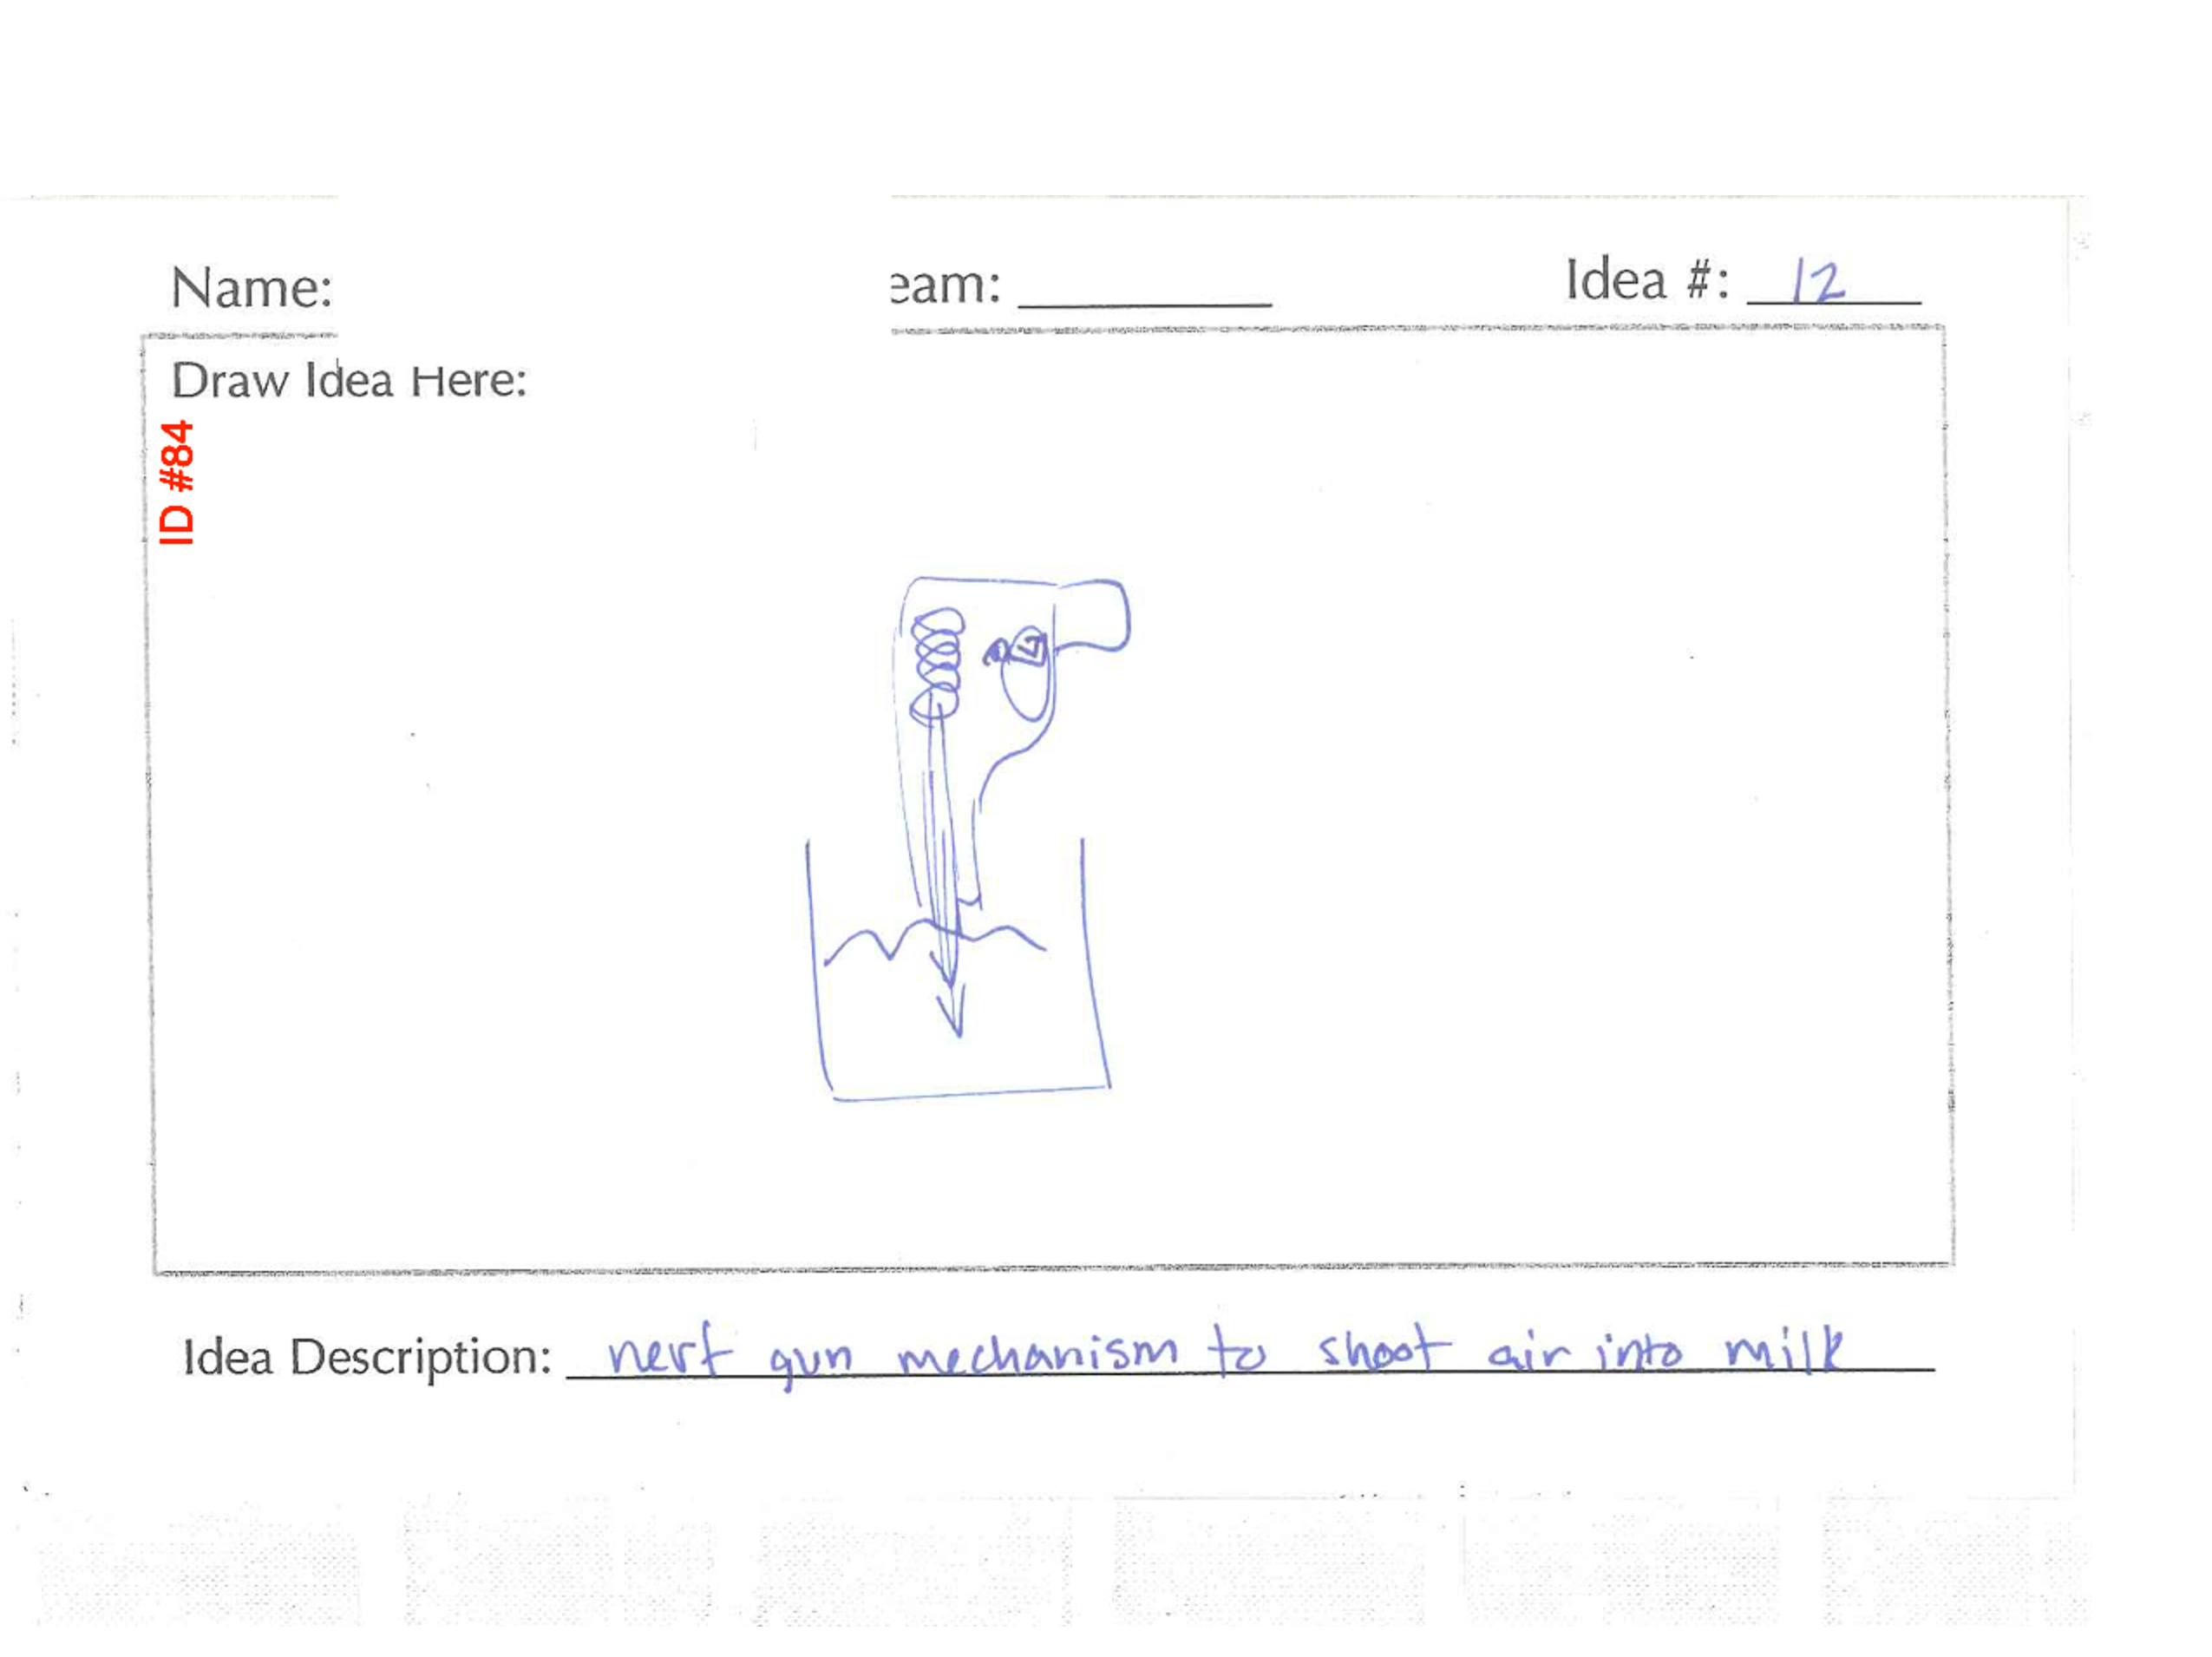 Name:
eam:
Idea #: 12
Draw Idea Here:
ID #84
Idea Description: nerf gun mechanism to shoot air into milk